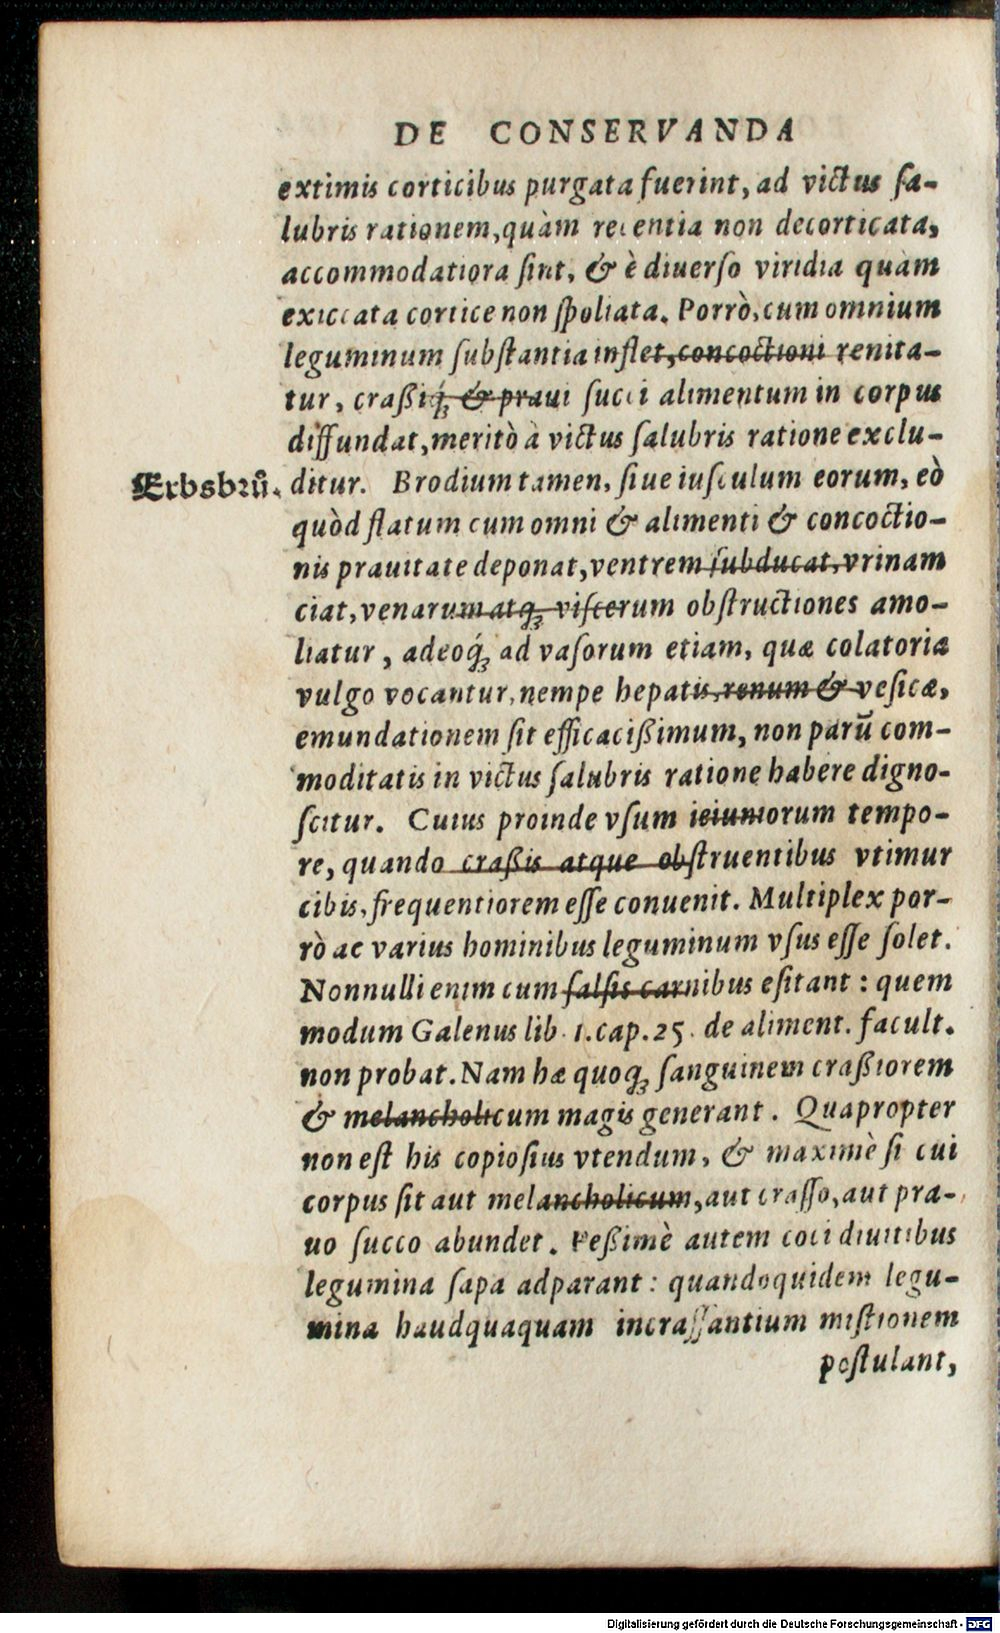 DE CONSERVANDA
extimis corticibus purgata fuerint, ad victus sa-
lubris rationem, quàm recentia non decorticata,
accommodatiora sint, & è diuerso viridia quàm
exiccata cortice non spoliata. Porrò, cum omnium
leguminum substantia inflet, concoctioni renita-
tur, craßiq́; & praui succi alimentum in corpus
diffundat, meritò à victus salubris ratione exclu-
Erbsbrů. ditur. Brodium tamen, siue iusculum eorum, eò
quòd flatum cum omni & alimenti & concoctio-
nis prauitate deponat, ventrem subducat, vrinam
ciat, venarum atq; viscerum obstructiones amo-
liatur, adeoq́; ad vasorum etiam, quæ colatoria
vulgo vocantur, nempe hepatis, renum & vesicæ,
emundationem sit efficacißimum, non parū com-
moditatis in victus salubris ratione habere digno-
scitur. Cuius proinde vsum ieiuniorum tempo-
re, quando craßis atque obstruentibus vtimur
cibis, frequentiorem esse conuenit. Multiplex por-
rò ac varius hominibus leguminum vsus esse solet.
Nonnulli enim cum salsis carnibus esitant : quem
modum Galenus lib. 1. cap. 25. de aliment. facult.
non probat. Nam hæ quoq; sanguinem craßiorem
& melancholicum magis generant. Quapropter
non est his copiosius vtendum, & maximè si cui
corpus sit aut melancholicum, aut crasso, aut pra-
uo succo abundet. Peßimè autem coci diuitibus
legumina sapa adparant : quandoquidem legu-
mina haudquaquam incrassantium mistionem
postulant,
Digitalisierung gefördert durch die Deutsche Forschungsgemeinschaft - DFG